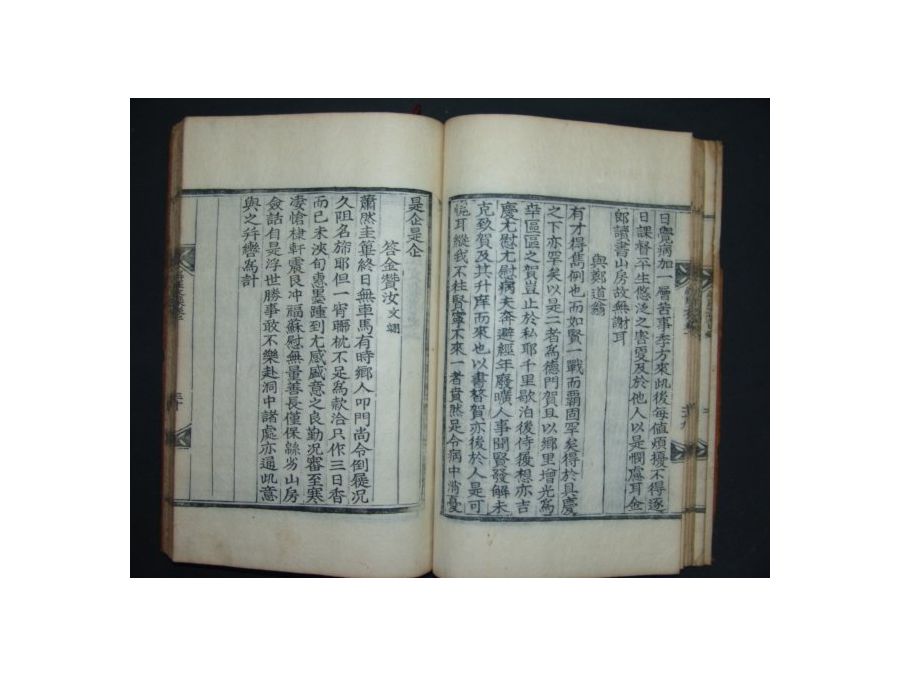 日覺病加一層苦事李方來此後每値煩擾不得逐
日課督平生悠泛之害憂及於他人以是憫慮耳金
郎讀書山房故無謝耳
與鄭道翁
有才得雋例也而如賢一戰而覇固罕矣得於具慶
之下亦罕矣以是二者爲德門賀且以鄕里增光爲
幸區區之賀豈止於私耶千里歇泊後侍後想亦吉
慶尤慰尤慰病夫奔避經年廢曠人事聞賢發解未
克致賀及其升庠而來也以書替賀亦後於人是可
愧耳縱我不往賢寧不來一者賁然是令病中消憂
是企是企
答金贊汝文
蕭然圭蓽終日無車馬有時鄕人叩門尚令倒屣况
久阻名旆耶但一宵聯枕不足爲款洽只作三日香
而已未浹旬惠墨踵到尤感盛意之良勤况審至寒
凄愴棣軒震艮冲福蘇慰無量善長僅保絲劣山房
僉話自是浮世勝事敢不樂赴洞中諸處亦通此意
與之幷轡爲計